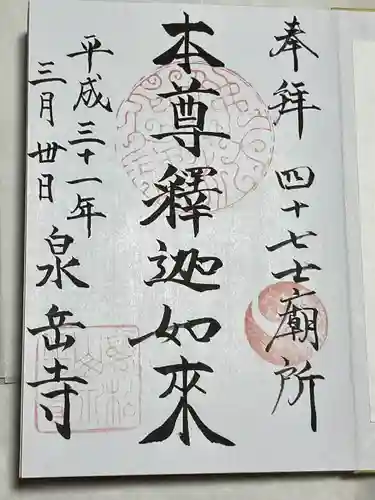 奉拝 四十七士廟所
本尊釋迦如來
平成三十一年
三月卅日 泉岳寺